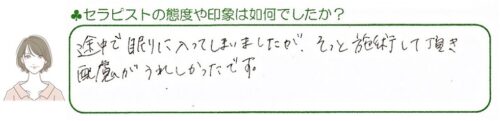 ♣セラピストの態度や印象は如何でしたか？
途中で眠りに入ってしまいましたが、そっと施術して頂き
配慮がうれしかったです。